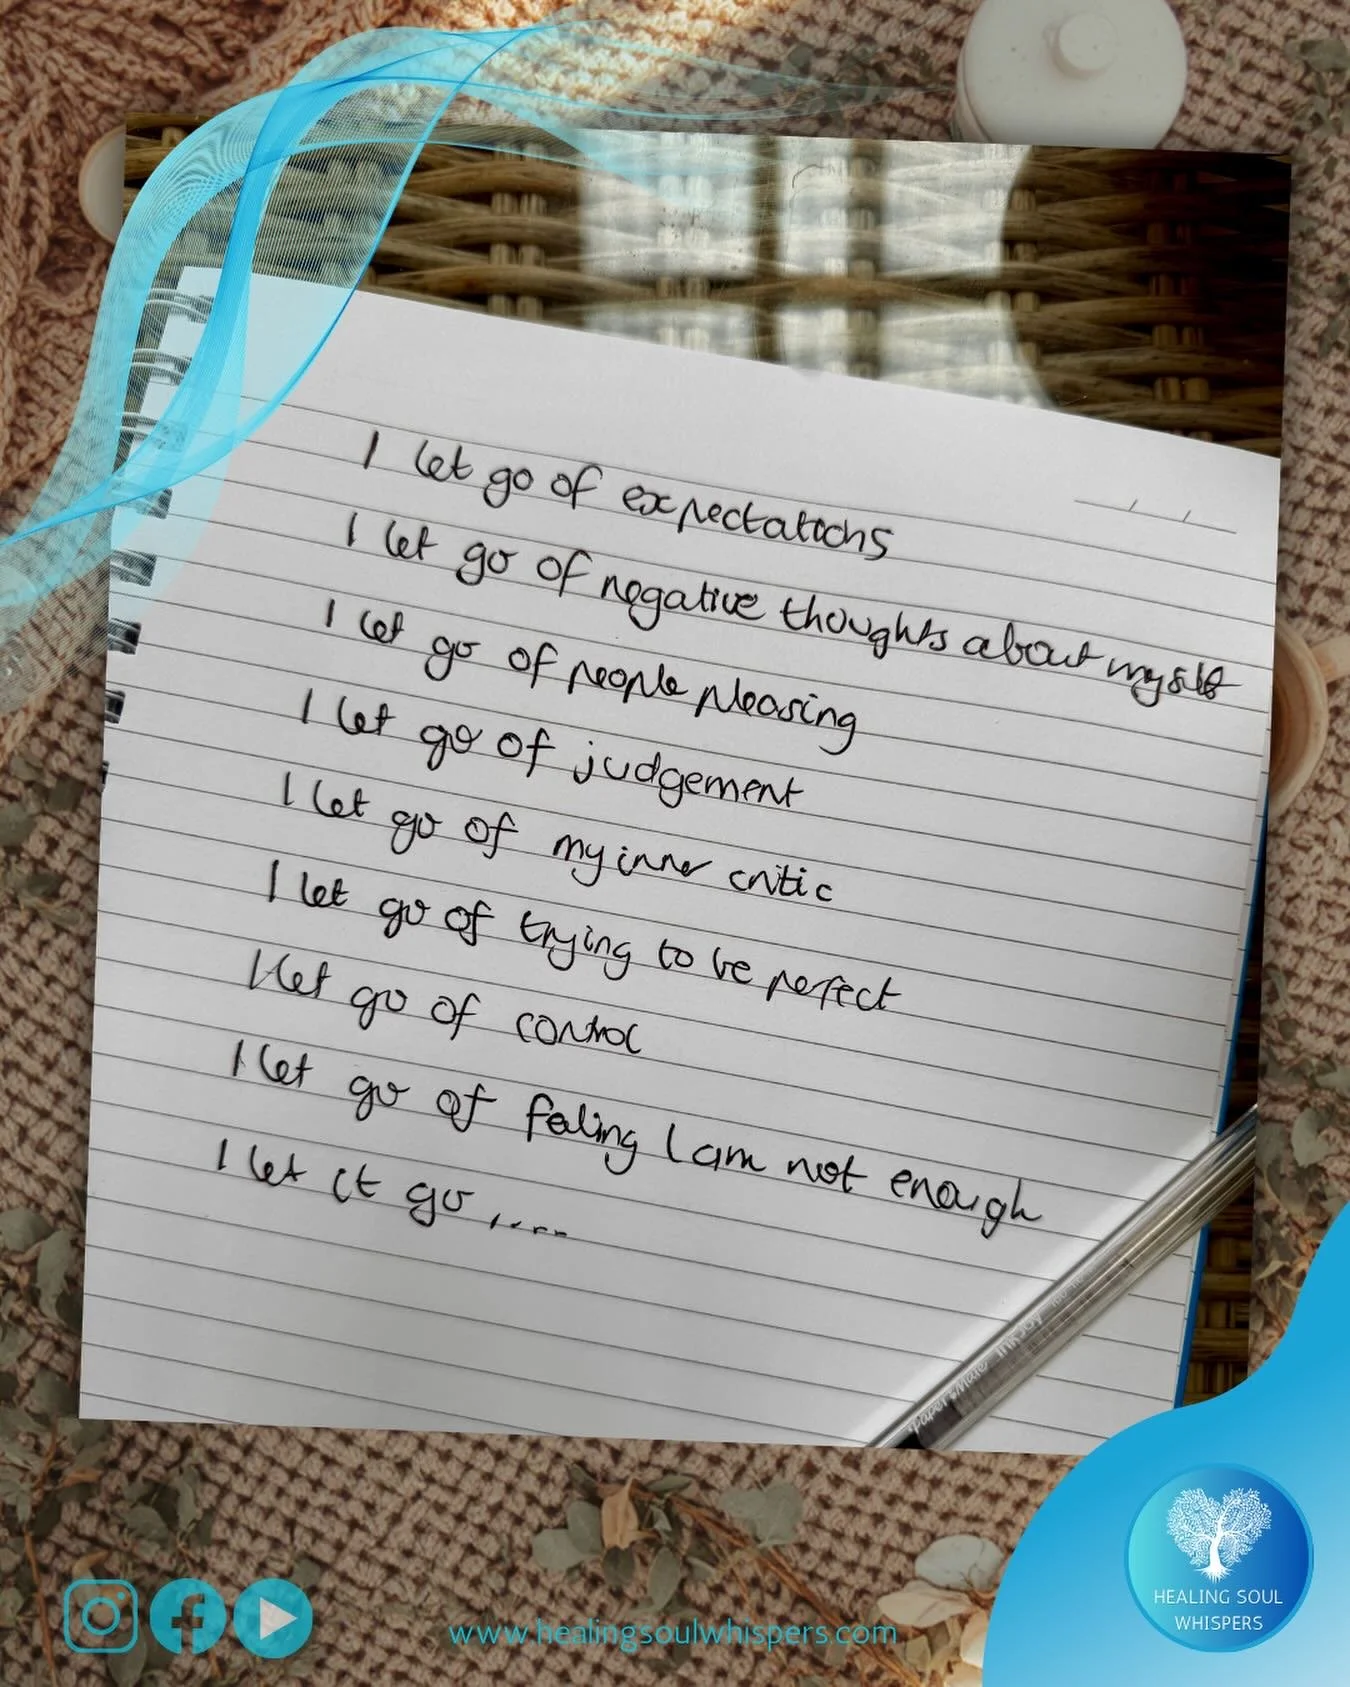 I let go of expectations
I let go of negative thoughts about myself
I let go of people pleasing
I let go of judgement
I let go of my inner critic
I let go of trying to be perfect
I let go of control
I let go of feeling I am not enough
I let it go ....
PaperMate InkJoy 100
HEALING SOUL
WHISPERS
www.healingsoulwhispers.com